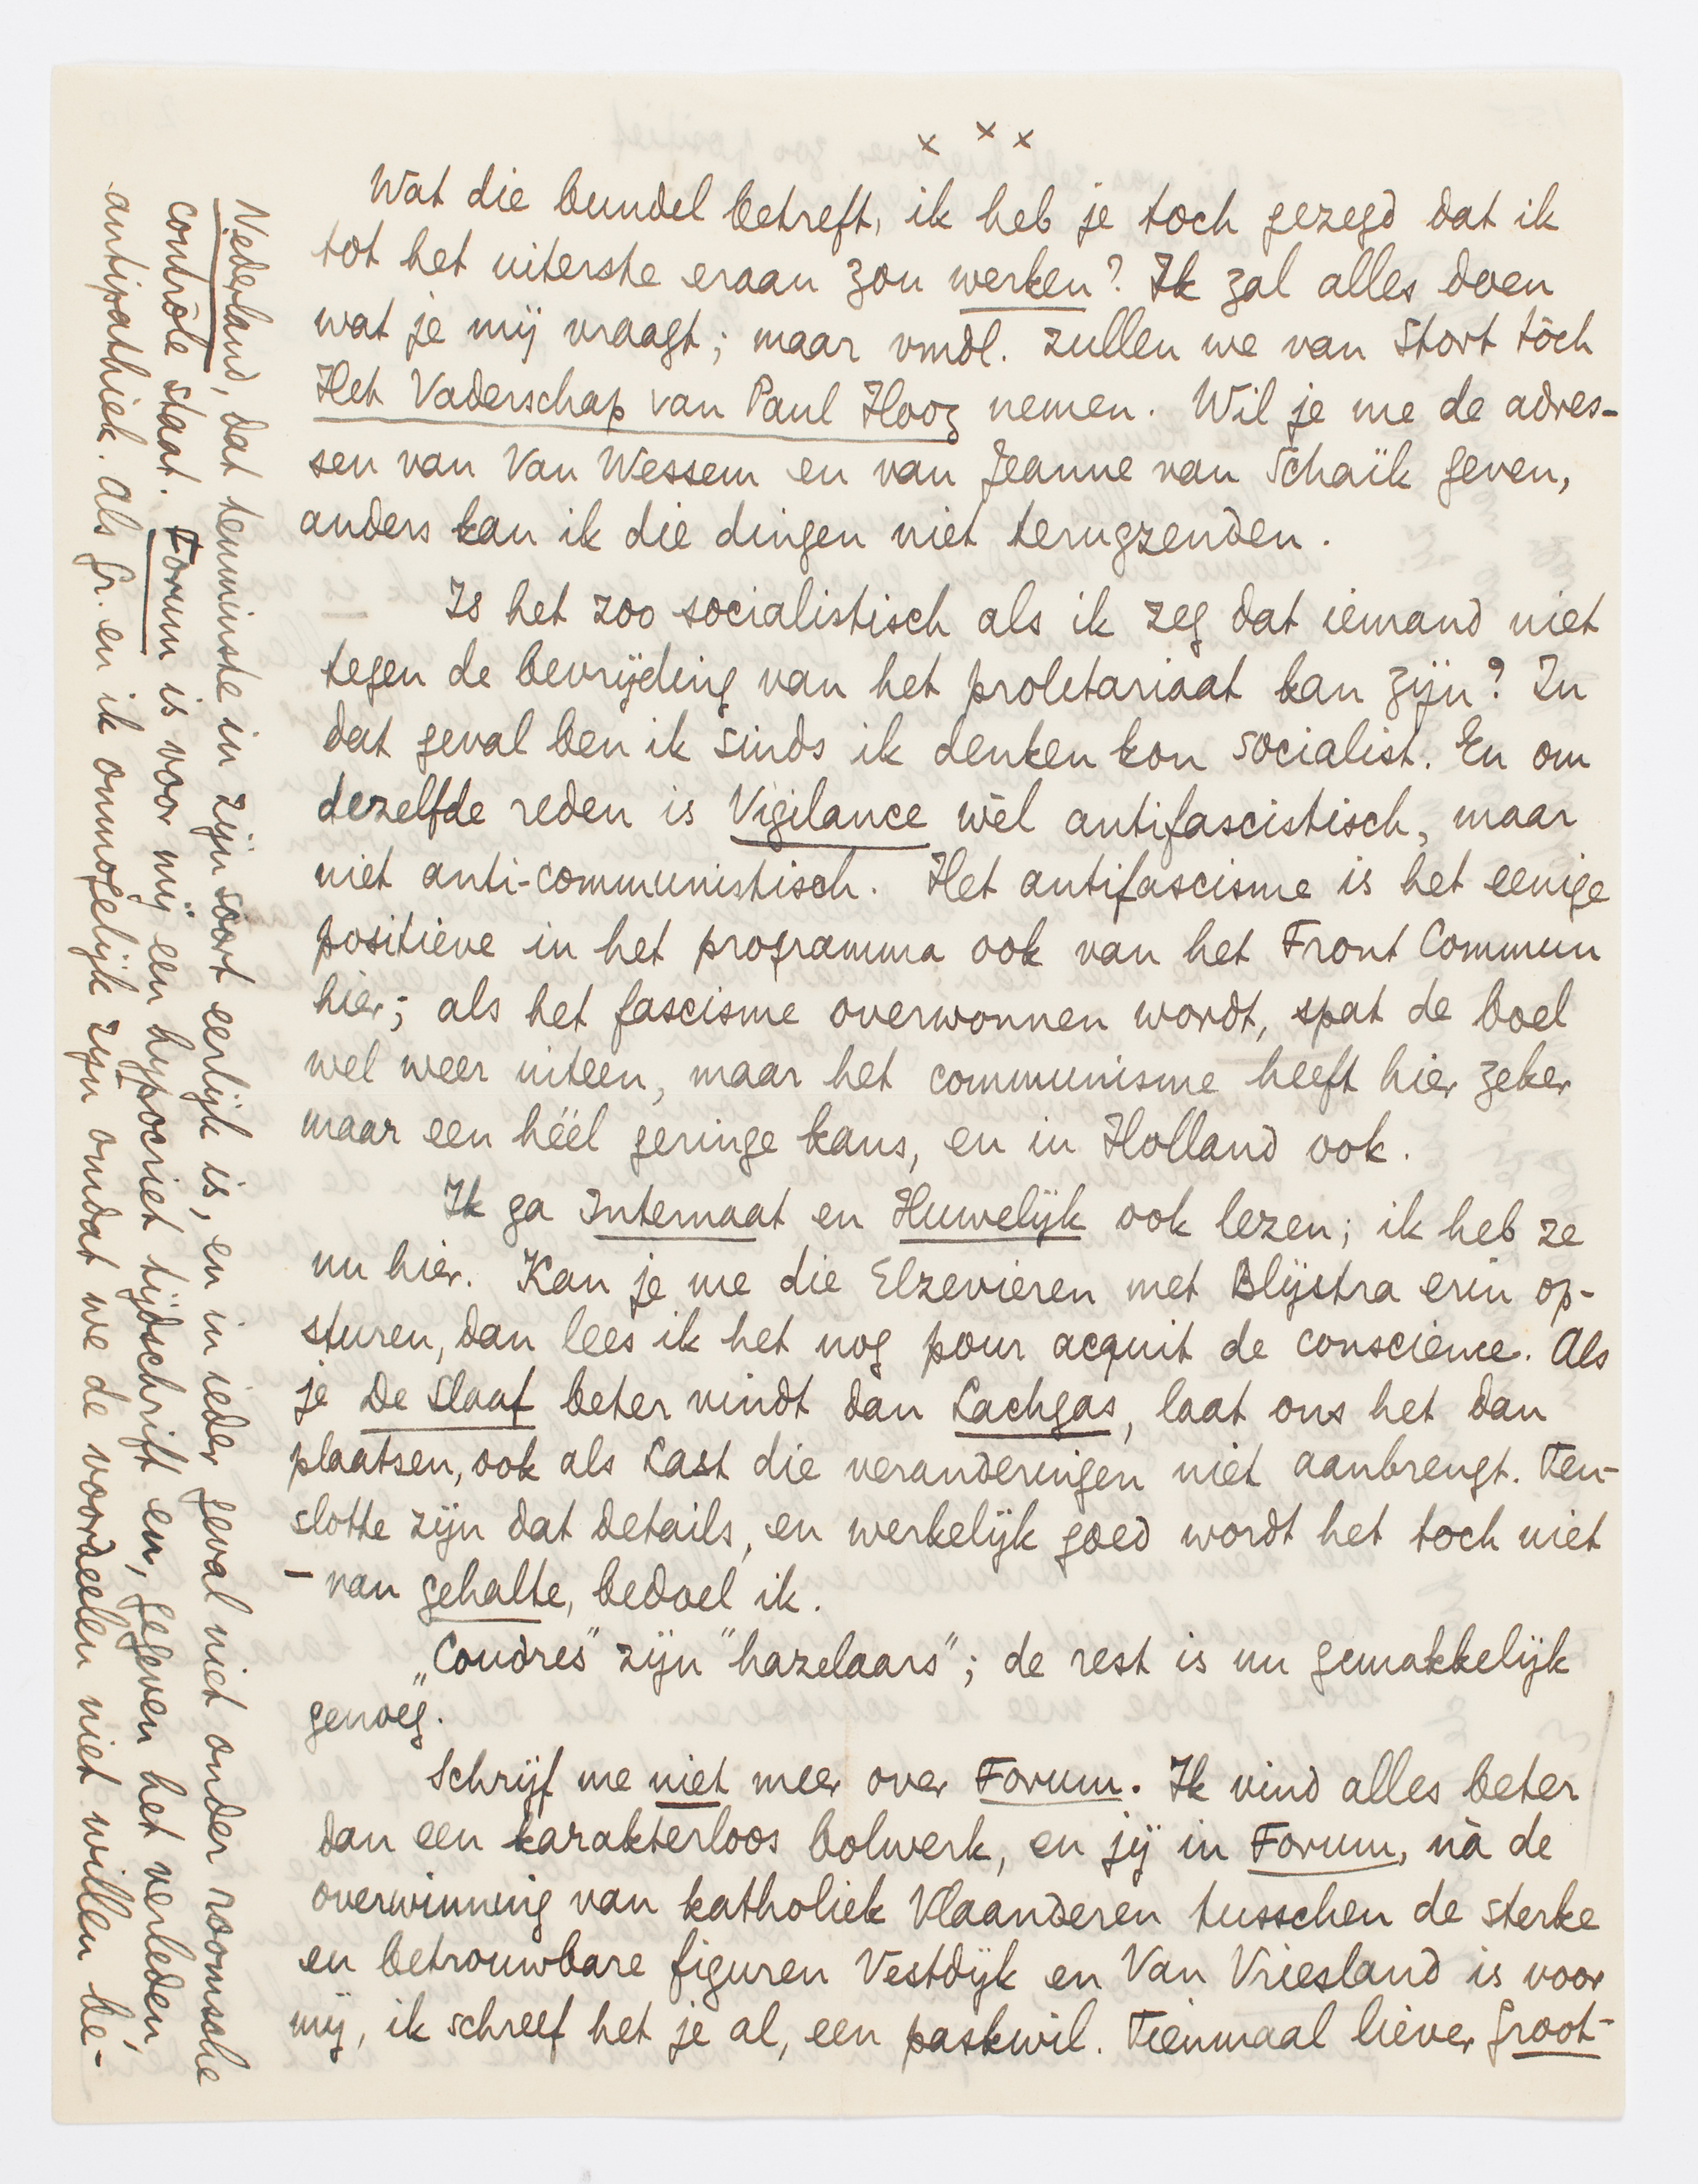 x x x
Wat die bundel betreft, ik heb je toch gezegd dat ik
tot het uiterste eraan zou werken? Ik zal alles doen
wat je mij vraagt; maar vmdl. zullen we van Stort tòch
Het Vaderschap van Paul Hoog nemen. Wil je me de adres-
sen van Van Wessem en van Jeanne van Schaïk geven,
anders kan ik die dingen niet terugzenden.
Is het zoo socialistisch als ik zeg dat iemand niet
tegen de bevrijding van het proletariaat kan zijn? In
dat geval ben ik sinds ik denken kon socialist. En om
dezelfde reden is Vigilance wèl antifascistisch, maar
niet anti-communistisch. Het antifascisme is het eenige
positieve in het programma ook van het Front Commun
hier; als het fascisme overwonnen wordt, spat de boel
wel weer uiteen, maar het communisme heeft hier zeker
maar een héél geringe kans, en in Holland ook.
Ik ga Internaat en Huwelijk ook lezen; ik heb ze
nu hier. Kan je me die Elzevieren met Blijstra erin op-
sturen, dan lees ik het nog pour acquit de conscience. Als
je De Slaaf beter vindt dan Lachgas, laat ons het dan
plaatsen, ook als Last die veranderingen niet aanbrengt. Ten-
slotte zijn dat details, en werkelijk goed wordt het toch niet
- van gehalte, bedoel ik.
„Coudres" zijn "hazelaars"; de rest is nu gemakkelijk
genoeg.
Schrijf me niet meer over Forum. Ik vind alles beter
dan een karakterloos bolwerk, en jij in Forum, nà de
overwinning van katholiek Vlaanderen tusschen de sterke
en betrouwbare figuren Vestdijk en Van Vriesland is voor
mij, ik schreef het je al, een paskwil. Tienmaal liever Groot-
Nederland, dat tenminste in zijn soort eerlijk is, en in ieder geval niet onder roomsche
contrôle staat. Forum is voor mij een hypocriet tijdschrift en, gegeven het verleden,
antipathiek. Als Gr. en ik onmogelijk zijn omdat we de voordeelen niet willen be-